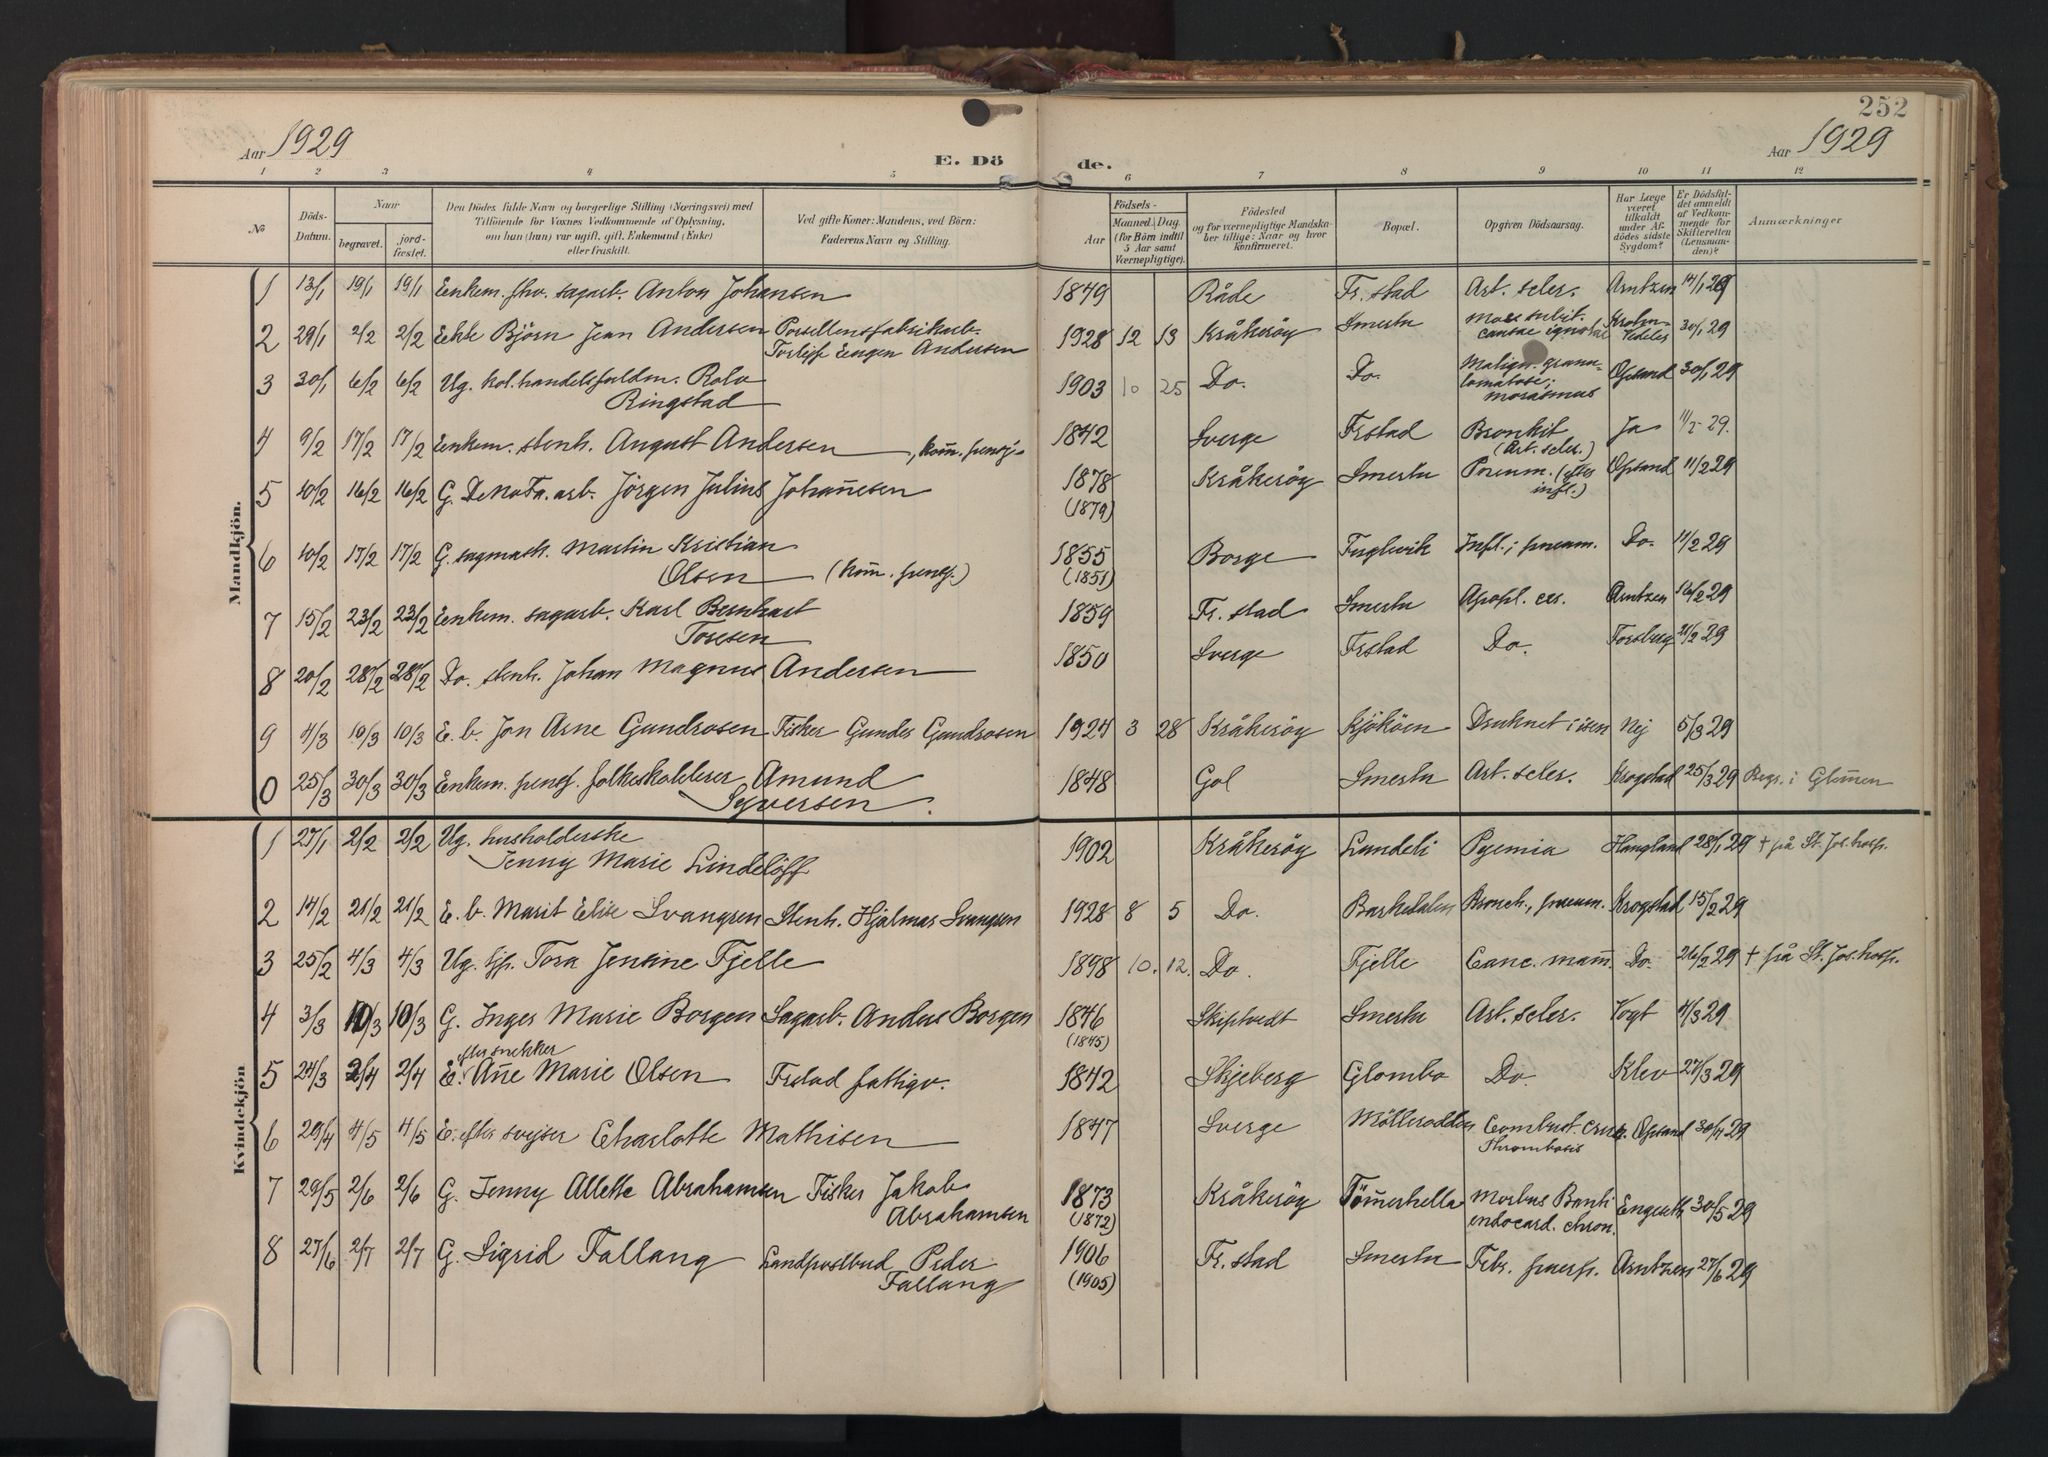 252
Aar 1929
E. Dö
de.
Aar 1929
1 2 3 4 5 6 7 8 9 10 11 12
No
Döds-Datum.
Naar
begravet.
jord-fæstet.
Den Dödes fulde Navn og borgerlige Stilling (Næringsvei) med
Tilföiende for Voxnes Vedkommende af Oplysning,
om han (hun) var ugift, gift, Enkemand (Enke)
eller fraskilt.
Ved gifte Koner: Mandens, ved Börn:
Faderens Navn og Stilling.
Födsels-
Aar
Maaned. Dag.
(for Börn indtil
5 Aar samt
Værnepligtige).
Födested
og for værnepligtige Mandska-
ber tillige: Naar og hvor
konfirmeret.
Bopæl.
Opgiven Dödsaarsag.
Har Læge
været
tilkaldt
under Af-
dödes sidste
Sygdom?
Er Dödsfal-
det anmeldt
af Vedkom-
mende for
Skifteretten
(Lensman-
den)?
Anmærkninger
Mandkjön.
1 13/1 19/1 19/1 Enkem. fhv. sagarb. Anton Johansen 1849 Råde Fr.stad Art. scler. Arntzen 14/1 29
2 29/1 2/2 2/2 Ekte Björn Jean Andersen Porsellensfabrikarb. 1928 12 13 Kråkeröy Smertu Mors subit. 30/1 29
Andersen causae ignotae
3 30/1 6/2 6/2 Ug. kol.handelsfuldm. Rolv 1903 10 25 Do. Do. Malign. granu- Opsand 30/1 29
Ringstad lomatose; marasmus
4 9/2 17/2 17/2 Enkem. stenh. August Andersen, kom. pensj. 1842 Sverge Frstad Bronkit Ja 11/2 29.
(Art. scler.)
5 10/2 16/2 16/2 G. DeNoFa. arb. Jörgen Julius Johannesen 1878 Kråkeröy Smertu Pneum. (efter Opsand 11/2 29
(1879) infl.)
6 10/2 17/2 17/2 G. sagmask. Martin Kristian 1855 Borge Fuglevik Infl.; pneum. Do. 11/2 29
Olsen (kom. pensj.) (1851)
7 15/2 23/2 23/2 Enkem. sagarb. Karl Bernhart 1859 Fr.stad Smertu Apopl. cer. Arntzen 16/2 29
Toresen
8 20/2 28/2 28/2 Do. stenh. Johan Magnus Andersen 1850 Sverge Frstad Do. Forsberg 21/2 29
9 4/3 10/3 10/3 E. b. Jon Arne Gundrosen Fisker Gunder Gundrosen 1924 3 28 Kråkeröy Kjököen Druknet i isen Nej 5/3 29
0 25/3 30/3 30/3 Enkem. pensj. folkeskolelærer Amund 1848 Gol Smertu Art. scler. Krogstad 25/3 29 Begr. i Glemmen
Syversen.
Kvindekjön
1 27/1 2/2 2/2 Ug. husholderske 1902 Kråkeröy Lundeli Pyemia Haugland 28/1 29 + på St. Jos. hosp.
Jenny Marie Lindelöff
2 14/2 21/2 21/2 E. b. Marit Elise Svangren Stenh. Hjalmar Svangren 1928 8 5 Do. Barkedalen Bronch., pneum. Krogstad 15/2 29
3 25/2 4/3 4/3 Ug. Tora Jensine Fjelle 1898 10. 12. Do. Fjelle Canc. mam. Do. 26/2 29 + på St. Jos. hosp.
4 3/3 10/3 10/3 G. Inger Marie Borgen Sagarb. Anders Borgen 1846 Skiptvedt Smertu Art. scler. Vogt 4/3 29
(1845)
efter snekker
5 24/3 2/4 2/4 E. Ane Marie Olsen Frstad fattigv. 1842 Skjeberg Glombo Do. Klev 27/3 29
6 29/4 4/5 4/5 E. efter svejser Charlotte Mathisen 1847 Sverge Möllerodden Combust. Opsand 30/4 29
Thrombosis
7 29/5 2/6 2/6 G. Jenny Allette Abrahamsen Fisker Jakob 1873 Kråkeröy Tömmerhella Morbus Banti 30/5 29
Abrahamsen (1872) endocard. chron.
8 27/6 2/7 2/7 G. Sigrid Fallang Landpostbud Peder 1906 Fr.stad Smertu Febr. puerp. Arntzen 27/6 29
Fallang (1905)